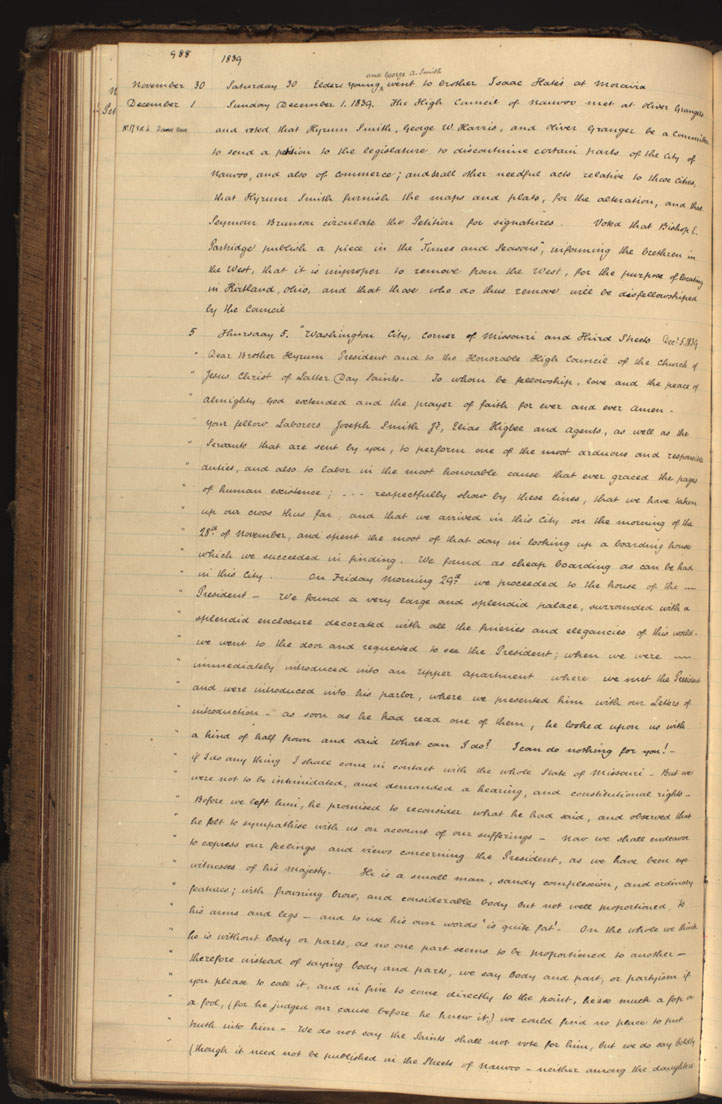 988 1839
and George A. Smith
November 30 Saturday 30 Elders Young, went to brother Isaac Hate's at Moravia
December 1 Sunday December 1. 1839. The High Council of Nauvoo met at Oliver Granger's
and voted that Hyrum Smith, George W. Harris, and Oliver Granger be a Committee
to send a petition to the legislature to discontinue certain parts of the City of
Nauvoo, and also of Commerce; and all other needful acts relative to those Cities,
that Hyrum Smith furnish the maps and plats, for the alteration, and that
Seymour Brunson circulate the Petition for signatures. Voted that Bishop E.
Partridge publish a piece in the "Times and Seasons", informing the brethren in
the West, that it is improper to remove from the West, for the purpose of locating
in Kirtland, Ohio, and that those who do thus remove will be disfellowshiped
by the Council
5 Thursday 5. "Washington City, Corner of Missouri and Third Streets Decr. 5. 1839
" Dear Brother Hyrum President and to the Honorable High Council of the Church of
" Jesus Christ of Latter Day Saints. To whom be fellowship, love and the peace of
" Almighty God extended and the prayer of faith for ever and ever Amen.
" Your fellow Laborers Joseph Smith Jr., Elias Higbee and Agents, as well as the
" Servants that are sent by you, to perform one of the most arduous and responsible
" duties, and also to labor in the most honorable cause that ever graced the pages
" of human existence; - - - respectfully show by these lines, that we have taken
" up our cross thus far, and that we arrived in this City on the morning of the
" 28th of November, and spent the most of that day in looking up a boarding house
" which we succeeded in finding. We found as cheap boarding as can be had
" in this City. On Friday morning 29th. we proceeded to the house of the —
" President – We found a very large and splendid palace, surrounded with a
" splendid enclosure decorated with all the fineries and elegancies of this world.
" we went to the door and requested to see the President; when we were —
" immediately introduced into an upper apartment where we met the President
" and were introduced into his parlor, where we presented him with our Letters of
" introduction – as soon as he had read one of them, he looked upon us with
" a kind of half frown and said What can I do! I can do nothing for you! –
" if I do any thing I shall come in contact with the whole State of Missouri – But we
" were not to be intimidated, and demanded a hearing, and constitutional rights –
" Before we left him, he promised to reconsider what he had said, and observed that
" he felt to sympathise with us on account of our sufferings – Now we shall endeavor
" to express our feelings and views concerning the President, as we have been eye
" witnesses of his Majesty. He is a small man, sandy complexion, and ordinary
" features; with frowning brow, and considerable body but not well proportioned, to
" his arms and legs – and to use his own words "is quite fat"! – On the whole we think
" he is without body or parts, as no one part seems to be proportioned to another –
" therefore instead of saying body and parts, we say body and part, or partyism if
" you please to call it, and in fine to come directly to the point, he is so much a fop or
" a fool, (for he judged our cause before he knew it,) we could find no place to put
" truth into him – We do not say the Saints shall not vote for him, but we do say boldly
" (though it need not be published in the Streets of Nauvoo – neither among the daughters